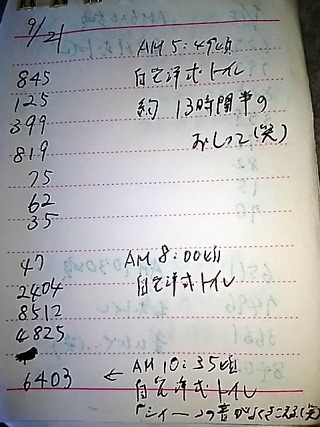 9/21
AM 5:49頃
845 自宅洋式トイレ
125 約 13時間半の
399 おしっこ(笑)
819
75
62
35
47 AM 8:00頃
2404 自宅洋式トイレ
8512
4825
6403 ← AM 10:35頃
自宅洋式トイレ
「シィーーの音がよくきこえる(笑)